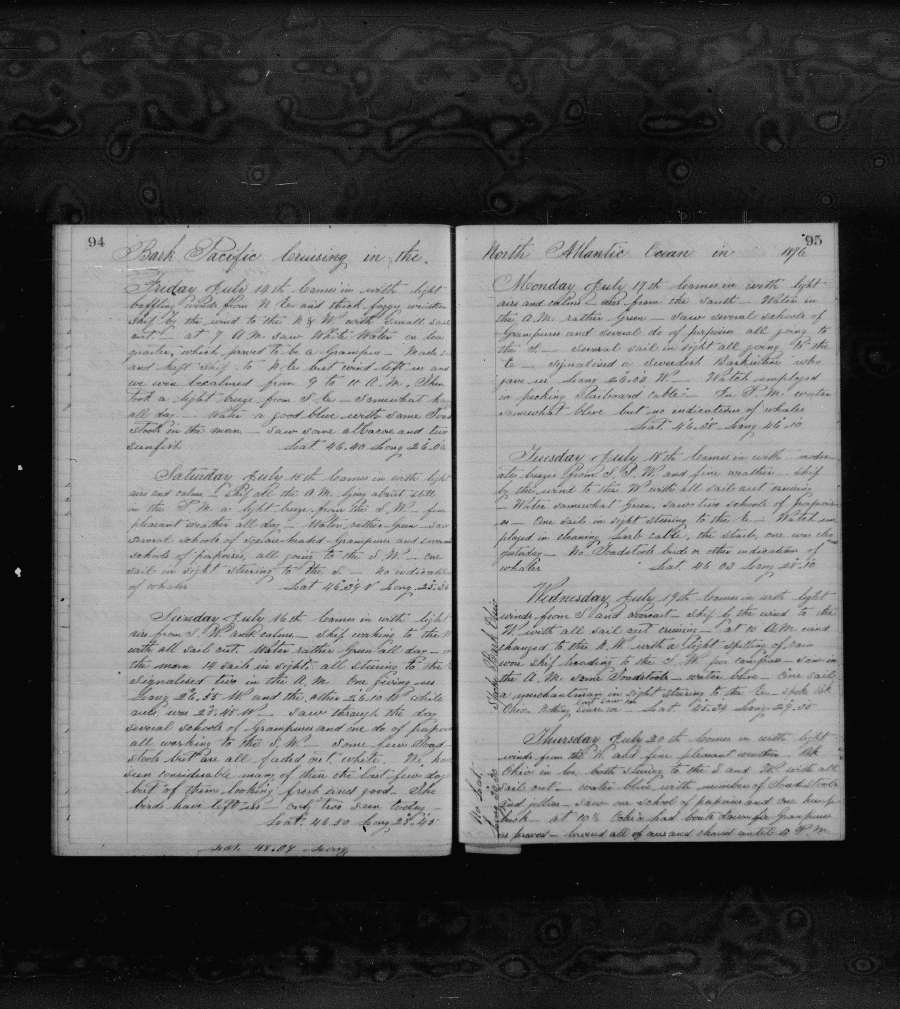 94
Bark Pacific Cruising in the
Friday July 14th Comes in with light
baffling winds from N E and thick foggy weather
Ship by the wind to the N & W with Small sail
out. — at 7 A M saw White Water on lea
quarter, which proved to be a Grampus — Made
and kept Ship to N E but wind left us and
we was becalmed from 9 to 11 A. M. Then
took a light breeze from S E — Somewhat
all day. Water a good blue with some
Stools in the morn — Saw some albacore and two
sunfish Lat. 46.40 Long 26.06
Saturday July 15th Comes in with light
airs and calms — Ship all the A M. lying about still
in the P M a light breeze from the S. W. — fine
pleasant weather all day — Water rather Green saw
several schools of Square-headed Grampuses and several
schools of porpoises, all going to the S W. — one
sail in sight steering to the S. — No indications
of whales Lat 46.39 N Long 25.
Sunday July 16th Comes in with light
airs from S. W and calms — Ship working to the
with all sail out. Water rather Green all day —
the morn 14 sails in sight, all steering to the
Signalised two in the A M One giving us
Long 26.35 W and the other 26.10 W while
ours was 25.45 W. — Saw through the day
several schools of Grampuses and one do of
all working to the S. W. — Some few Toad
Stools but are all faded out, white. We
seen considerable many of them the last few day
but of them looking fresh and good. The
birds have left us — only two seen today —
Lat. 46.50 Long 25.45
Lat. 48.07 Long
95
North Atlantic Ocean in 1876
Moonday July 17th Comes in with light
airs and calms — airs from the South — Water in
the A. M. rather Green — Saw several schools of
Grampuses and several do of porpoises all going to
the S — several sail in sight all going to the
E — Signalised a Swedish Barkentine who
gave us Long 26.02 W — Watch employed
in picking Starboard cable — In P. M. water
somewhat blue but no indications of whales
Lat. 46.28 Long 26.10
Tuesday July 18th Comes in with moder
ate breezes from S. S W and fine weather — Ship
by the wind to the W with all sail out cruising
— Water somewhat Green, saw two schools of porpois
es — One sail in sight steering to the E — Watch em
ployed in cleaning Larb cable, the Starb, one was
yesterday — No Toadstools birds or other indication of
whales Lat 46 03 Long 28.10
Wednesday July 19th Comes in with light
winds from S and Overcast — Ship by the wind to the
W with all sail out cruising — at 10 A M wind
changed to the N. W. with a light of rain
wore Ship heading to the S. W per compass — Saw in
the A. M. some Toadstools — water blue — One sail
a merchantman in sight steering to the E — spoke Bk
Ohio Nothing
Lat. 45.34 Long 29.25
Spoke Bark Ohio
Thursday July 20th Comes in with light
winds from the N and fine pleasant weather Bk
Ohio in Co. both steering to the S and W. with all
sail out — water blue, with number of Toadstools
and jellies — Saw one school of porpoises and one hump
back — at 10½ Ohio had boats down for Grampuses
as proved — lowered all of ours and chased until 12 M
No Lat.